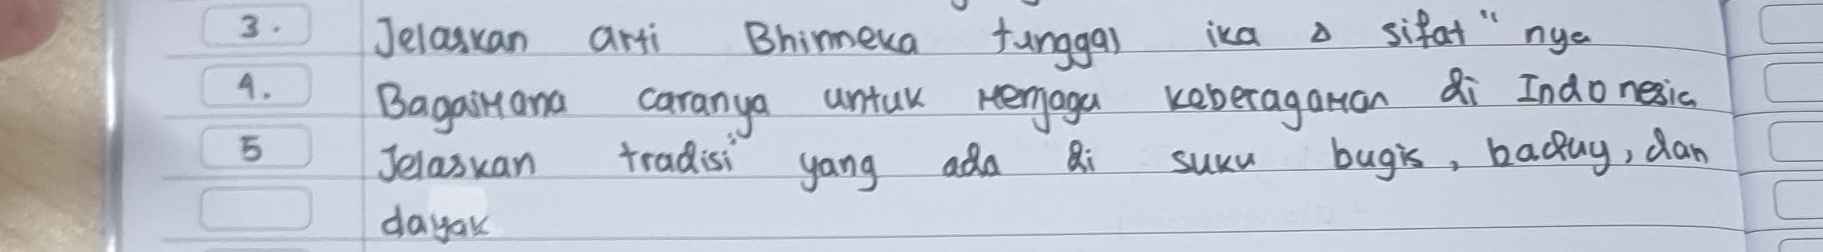 3. Jelaskan arti Bhinneka tunggal ika & sifat" nya
4. Bagaimana caranya untuk menjaga keberagaman di Indonesia
5 Jelaskan tradisi" yang ada di suku bugis, baduy, dan
dayak